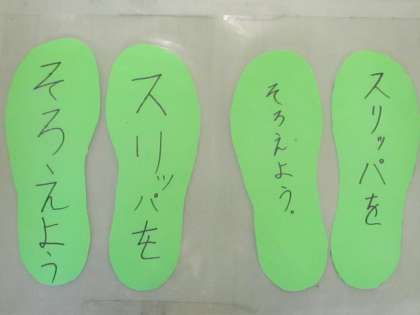 スリッパを
そろえよう。
スリッパを
そろえよう